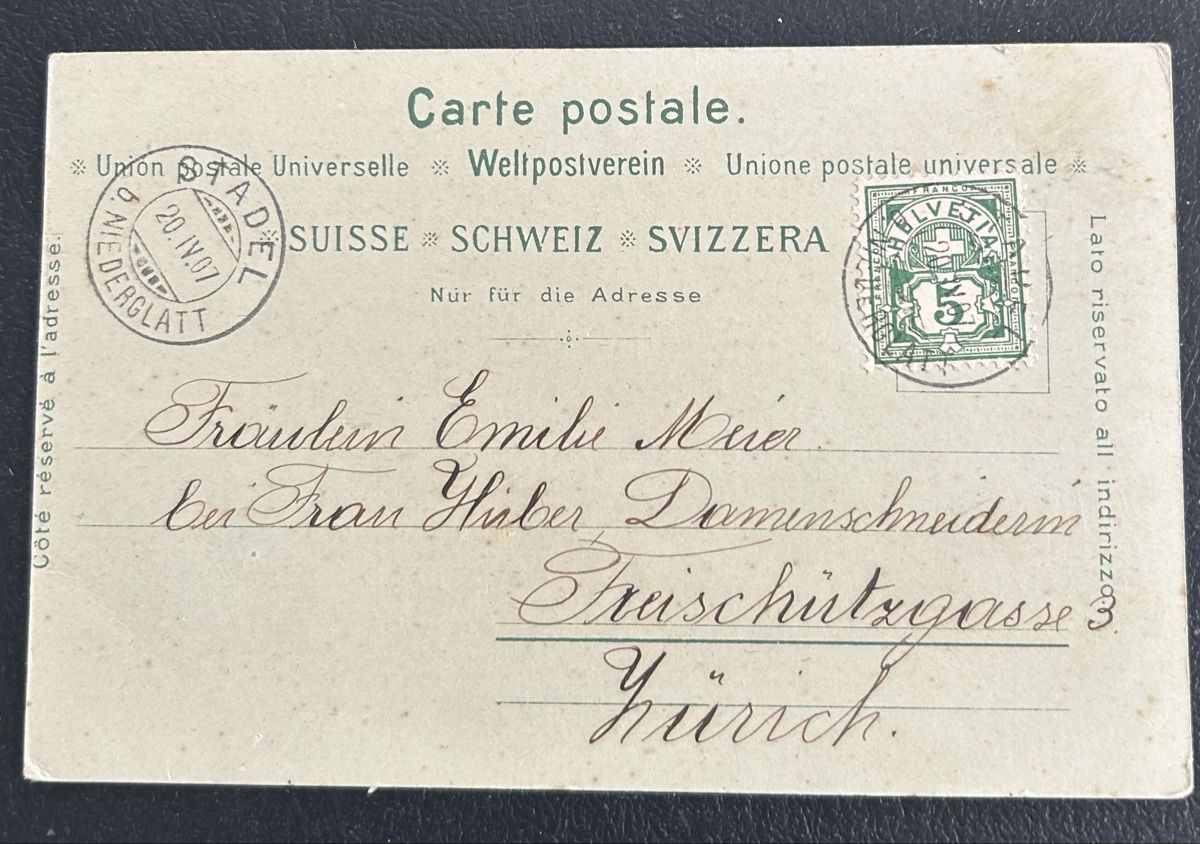 Carte postale.
※ Union postale Universelle ※ Weltpostverein ※ Unione postale universale ※
※ SUISSE ※ SCHWEIZ ※ SVIZZERA
Nur für die Adresse
Côté réservé à l'adresse.
STADEL
20.IV.07
b. NIEDERGLATT
FRANCO
HELVETIA
FRANCO
FRANCO
5
Lato riservato all indirizzo
Fräulein Emilie Meier.
bei Frau Huber, Damenschneiderin
Freischützgasse 3.
Zürich.